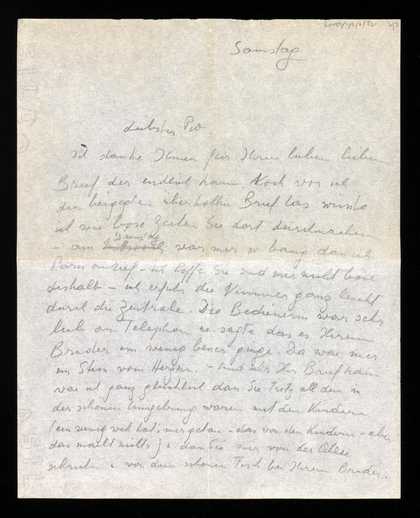 Samstag
Liebster Pio
ich danke Ihnen für Ihren lieben lieben
Brief der endlich kam. Noch vor ich
den beigegeben überholten Brief las wusste
ich wie böse Zeiten Sie dort durchmachen
- am war mir so bang dass ich
Paris anrief - ich hoffe Sie sind mir nicht böse
deshalb - ich erfuhr die Nummer ganz leicht
durch die Zentrale. Die Bedienerin war sehr
lieb am Telephon u. sagte dass es Ihrem
Bruder ein wenig besser ginge. Da war mir
ein Stein vom Herzen. - und als Ihr Brief kam
war ich ganz dass Sie trotz all dem in
der schönen Umgebung waren mit den Kindern
(ein wenig weh hat's mir getan - das von den Kindern - aber
das macht nichts) u. dass Sie mir von der
schrieben u. vor dem schönen Tisch bei Ihrem Bruder.